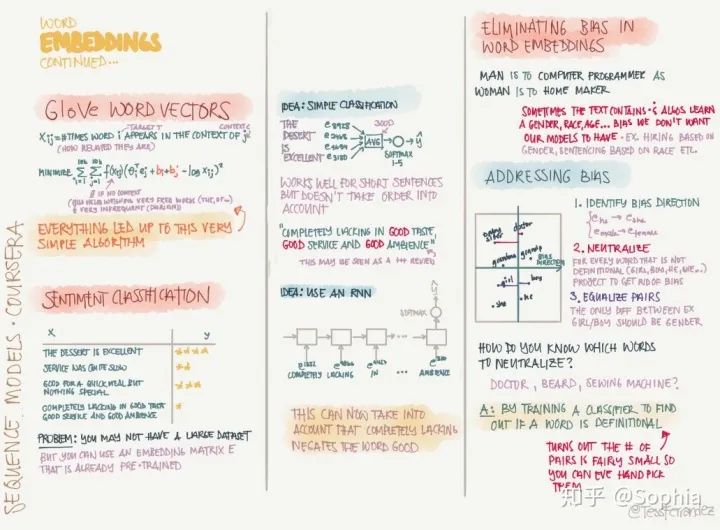 WORD
EMBEDDINGS
CONTINUED...
GloVe WORD VECTORS
Xij = # TIMES WORD i APPEARS IN THE CONTEXT OF j
TARGET
CONTEXT
(HOW RELATED THEY ARE)
MINIMIZE
10k 10k
∑ ∑ f(xij) (θiᵀej + bi + bj' - log xij)²
i=1 j=1
IF NO CONTEXT
& VERY INFREQUENT (DURIAN)
EVERYTHING LED UP TO THIS VERY
SIMPLE ALGORITHM
SENTIMENT CLASSIFICATION
X Y
THE DESSERT IS EXCELLENT
SERVICE WAS QUITE SLOW
GOOD FOR A QUICK MEAL BUT
NOTHING SPECIAL
COMPLETELY LACKING IN GOOD TASTE
GOOD SERVICE AND GOOD AMBIENCE
PROBLEM: YOU MAY NOT HAVE A LARGE DATASET
BUT YOU CAN USE AN EMBEDDING MATRIX E
THAT IS ALREADY PRE-TRAINED
SEQUENCE MODELS · COURSERA
IDEA: SIMPLE CLASSIFICATION
THE
DESERT
IS
EXCELLENT
e8928
e2468
e4694
e3180
300D
AVG
ŷ
SOFTMAX
1-5
WORKS WELL FOR SHORT SENTENCES
BUT DOESN'T TAKE ORDER INTO
ACCOUNT
"COMPLETELY LACKING IN GOOD TASTE,
GOOD SERVICE AND GOOD AMBIENCE"
THIS MAY BE SEEN AS A +++ REVIEW
IDEA: USE AN RNN
ŷ
1-5
SOFTMAX
e1852 e4966 e4427 ... e330
COMPLETELY LACKING IN ... AMBIENCE
THIS CAN NOW TAKE INTO
ACCOUNT THAT COMPLETELY LACKING
NEGATES THE WORD GOOD
ELIMINATING BIAS IN
WORD EMBEDDINGS
MAN IS TO COMPUTER PROGRAMMER AS
WOMAN IS TO HOME MAKER
SOMETIMES THE TEXT CONTAINS & ALGOS LEARN
A GENDER, RACE, AGE... BIAS WE DON'T WANT
OUR MODELS TO HAVE · EX. HIRING BASED ON
GENDER, SENTENCING BASED ON RACE ETC.
ADDRESSING BIAS
1. IDENTIFY BIAS DIRECTION
{ ehe → eshe
emale → efemale
2. NEUTRALIZE
FOR EVERY WORD THAT IS NOT
DEFINITIONAL (GIRL, BOY, HE, SHE...)
PROJECT TO GET RID OF BIAS
3. EQUALIZE PAIRS
THE ONLY DIFF BETWEEN EX
GIRL/BOY SHOULD BE GENDER
baby
sitter
doctor
grandma
grandpa
BIAS
DIRECTION
girl
boy
she
he
HOW DO YOU KNOW WHICH WORDS
TO NEUTRALIZE?
DOCTOR, BEARD, SEWING MACHINE?
A: BY TRAINING A CLASSIFIER TO FIND
OUT IF A WORD IS DEFINITIONAL
TURNS OUT THE # OF
PAIRS IS FAIRLY SMALL SO
YOU CAN EVE HAND PICK
THEM
知乎 @Sophia
@TessFerrandez